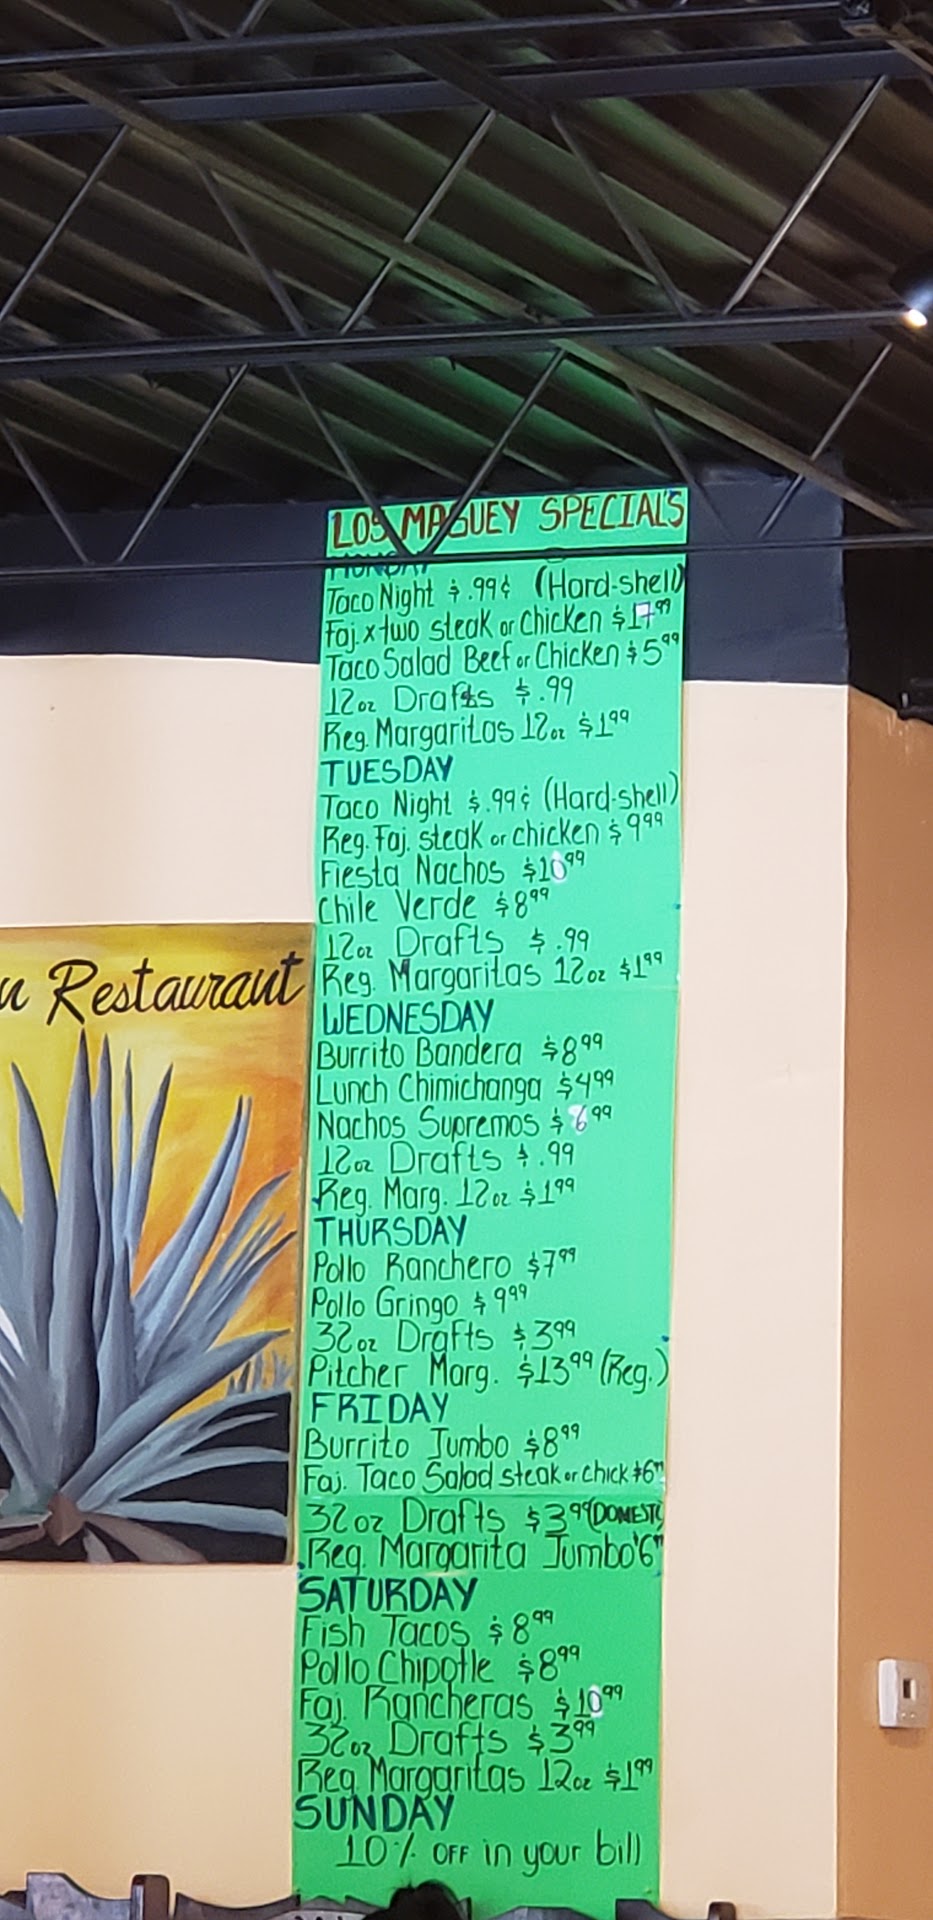 LOS MAGUEY SPECIALS
MONDAY
Taco Night $.99¢ (Hard-shell)
Faj. x two steak or Chicken $17.99
Taco Salad Beef or Chicken $5.99
12oz Drafts $.99
Reg. Margaritas 12oz $1.99
TUESDAY
Taco Night $.99¢ (Hard-shell)
Reg. Faj. steak or chicken $9.99
Fiesta Nachos $10.99
Chile Verde $8.99
12oz Drafts $.99
Reg. Margaritas 12oz $1.99
WEDNESDAY
Burrito Bandera $8.99
Lunch Chimichanga $4.99
Nachos Supremos $6.99
12oz Drafts $.99
Reg. Marg. 12oz $1.99
THURSDAY
Pollo Ranchero $7.99
Pollo Gringo $9.99
32oz Drafts $.3.99
Pitcher Marg. $13.99 (Reg.)
FRIDAY
Burrito Jumbo $8.99
Faj. Taco Salad steak or chick $6.99
32oz Drafts $3.99 (DOMESTC
Reg. Margarita Jumbo $6.99
SATURDAY
Fish Tacos $8.99
Pollo Chipotle $8.99
Faj. Rancheras $10.99
32oz Drafts $3.99
Reg Margaritas 12oz $1.99
SUNDAY
10% OFF in your bill
n Restaurant